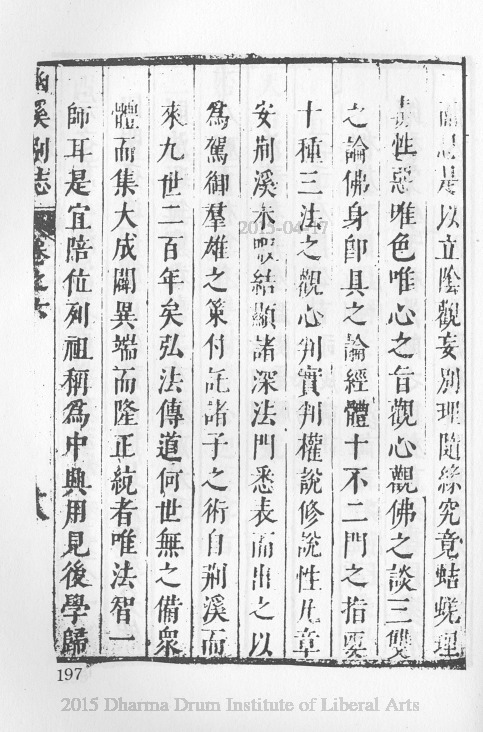 是以立陰觀妄別理隨緣究竟蛣蜣理
性惡唯色唯心之旨觀心觀佛之談三雙
之論佛身卽具之論經體十不二門之指要
十種三法之觀心判實判權說修說性凡章
安荊溪未暇結顯諸深法門悉表而出之以
為駕御羣雄之策付託諸子之術自荊溪而
來九世二百年矣弘法傳道何世無之備衆
體而集大成闢異端而隆正統者唯法智一
師耳是宜陪位列祖稱為中興用見後學歸
幽溪別志 卷之六
197
2015-04-17
2015 Dharma Drum Institute of Liberal Arts